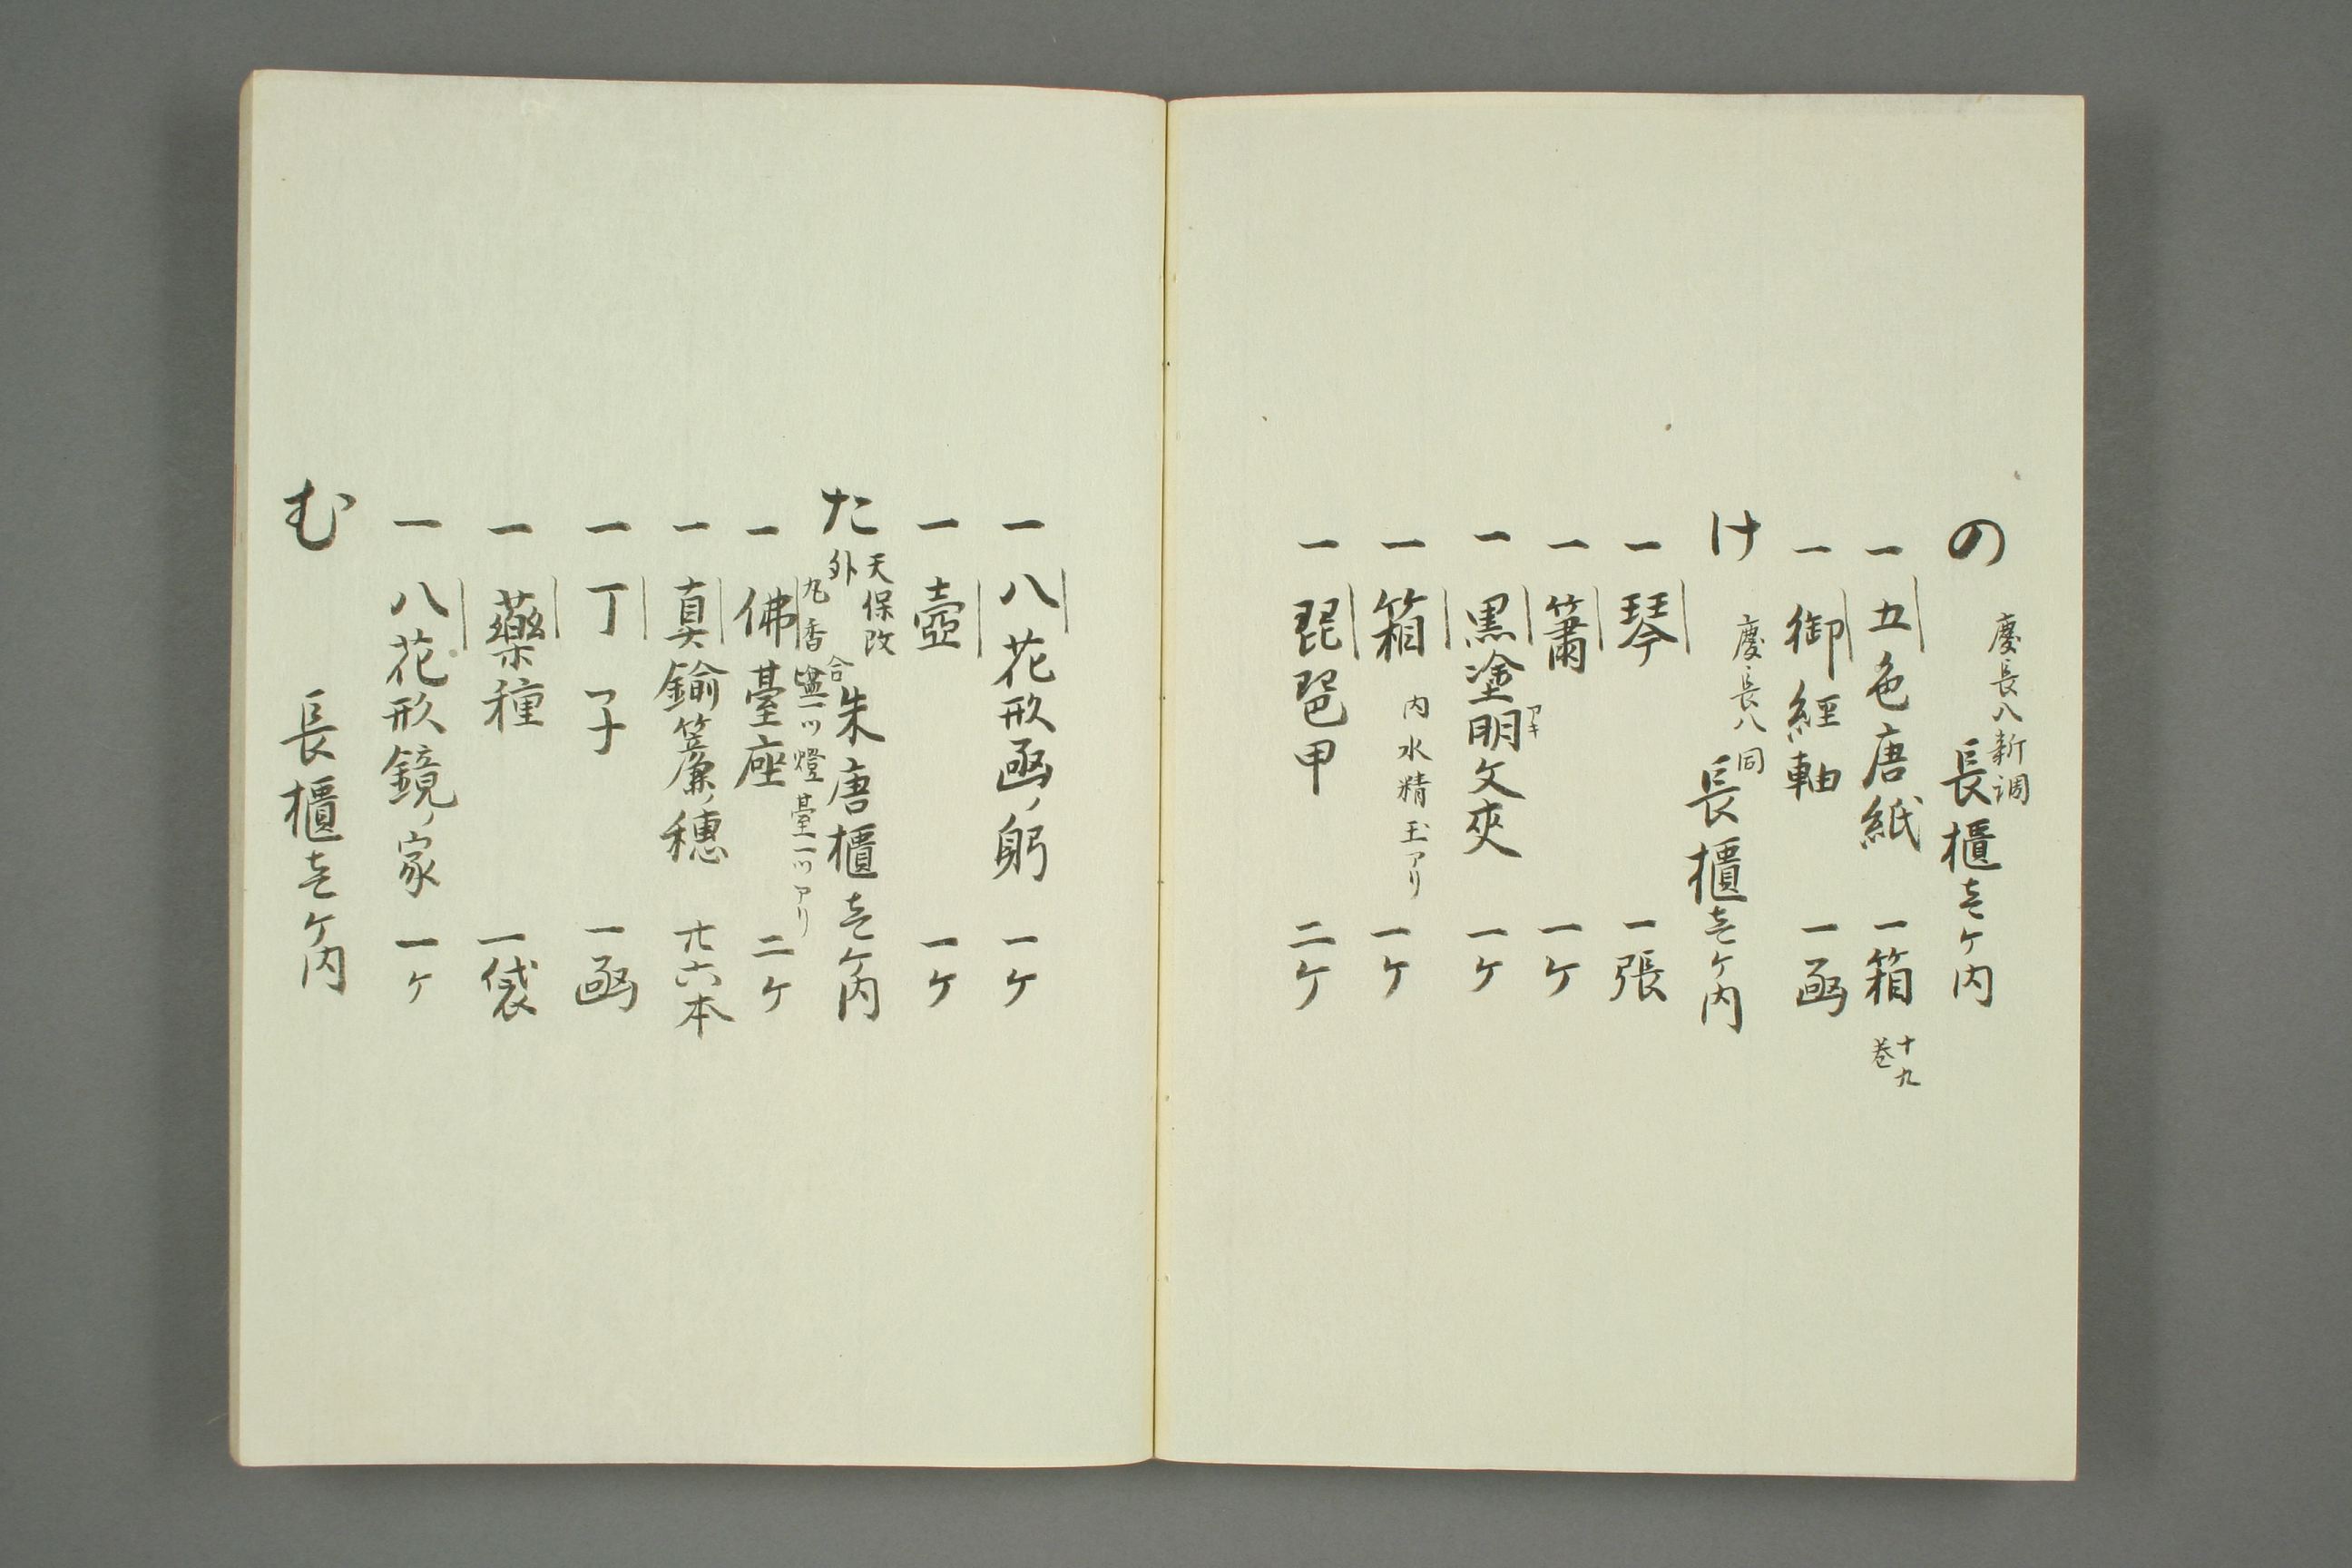 の 慶長八新調 長櫃壱ケ内
一 五色唐紙 一箱 十九巻
一 御經軸 一凾
け 慶長八同 長櫃壱ケ内
一 琴 一張
一 簫 一ケ
一 黒塗明文夾 一ケ
アキ
一 箱 内水精玉アリ 一ケ
一 琵琶甲 二ケ
一 八花形凾ノ躬 一ケ
一 壺 一ケ
た 天保改 朱唐櫃壱ケ内
外 丸香合一ツ燈臺一ツアリ
一 佛臺座 二ケ
一 真鍮簾ノ穗 六本
一 丁子 一凾
一 藥種 一袋
一 八花形鏡ノ家 一ケ
む 長櫃壱ケ内